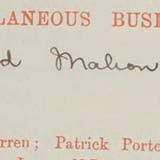 LANEOUS BUSI
d Malion
rren; Patrick Porte